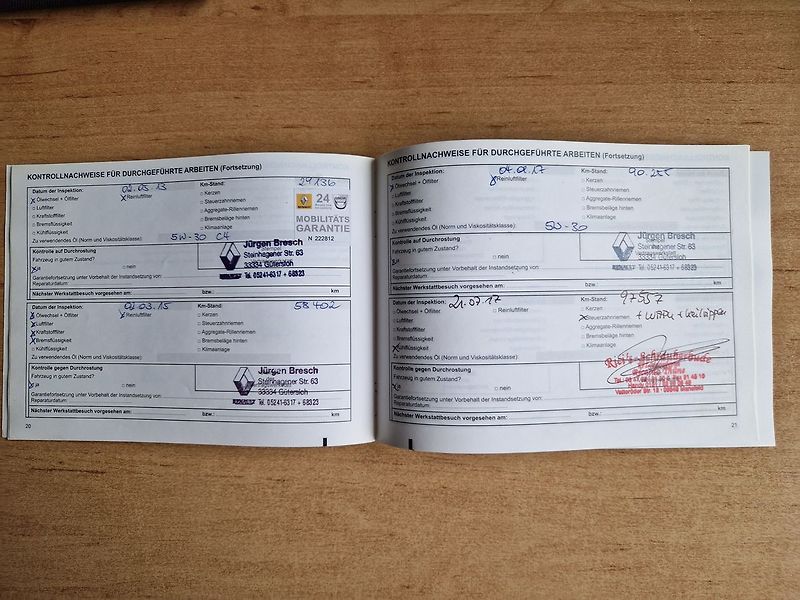 KONTROLLNACHWEISE FÜR DURCHGEFÜHRTE ARBEITEN (Fortsetzung)
Datum der Inspektion: 02.05.13 Km-Stand: 29136
Ölwechsel + Ölfilter Reinluftfilter Kerzen
Luftfilter Steuerzahnriemen
Kraftstofffilter Aggregate-Rillenriemen
Bremsflüssigkeit Bremsbeläge hinten
Kühlflüssigkeit Klimaanlage
24
MOBILITÄTS
GARANTIE
N 222812
Zu verwendendes Öl (Norm und Viskositätsklasse): 5W-30 C4
Kontrolle auf Durchrostung
Fahrzeug in gutem Zustand?
ja nein
Garantiefortsetzung unter Vorbehalt der Instandsetzung von:
Reparaturdatum:
Jürgen Bresch
Steinhagener Str. 63
33334 Gütersloh
RENAULT Tel. 05241-6317 + 68323
Nächster Werkstattbesuch vorgesehen am: bzw.: km
Datum der Inspektion: 03.15 Km-Stand: 58402
Ölwechsel + Ölfilter Reinluftfilter Kerzen
Luftfilter Steuerzahnriemen
Kraftstofffilter Aggregate-Rillenriemen
Bremsflüssigkeit Bremsbeläge hinten
Kühlflüssigkeit Klimaanlage
Zu verwendendes Öl (Norm und Viskositätsklasse):
Kontrolle gegen Durchrostung
Fahrzeug in gutem Zustand?
ja nein
Garantiefortsetzung unter Vorbehalt der Instandsetzung von:
Reparaturdatum:
Jürgen Bresch
Steinhagener Str. 63
33334 Gütersloh
RENAULT Tel. 05241-6317 + 68323
Nächster Werkstattbesuch vorgesehen am: bzw.: km
20
KONTROLLNACHWEISE FÜR DURCHGEFÜHRTE ARBEITEN (Fortsetzung)
Datum der Inspektion: Km-Stand: 90.255
Ölwechsel + Ölfilter Reinluftfilter Kerzen
Luftfilter Steuerzahnriemen
Kraftstofffilter Aggregate-Rillenriemen
Bremsflüssigkeit Bremsbeläge hinten
Kühlflüssigkeit Klimaanlage
Zu verwendendes Öl (Norm und Viskositätsklasse): 5W-30
Kontrolle auf Durchrostung
Fahrzeug in gutem Zustand?
ja nein
Garantiefortsetzung unter Vorbehalt der Instandsetzung von:
Reparaturdatum:
Jürgen Bresch
Steinhagener Str. 63
33334 Gütersloh
RENAULT Tel. 05241-6317 + 68323
Nächster Werkstattbesuch vorgesehen am: bzw.: km
Datum der Inspektion: 21.07.17 Km-Stand: 97557
Ölwechsel + Ölfilter Reinluftfilter Kerzen
Luftfilter Steuerzahnriemen + WAPU + Keilrippen
Kraftstofffilter Aggregate-Rillenriemen
Bremsflüssigkeit Bremsbeläge hinten
Kühlflüssigkeit Klimaanlage
Zu verwendendes Öl (Norm und Viskositätsklasse):
Kontrolle gegen Durchrostung
Fahrzeug in gutem Zustand?
ja nein
Garantiefortsetzung unter Vorbehalt der Instandsetzung von:
Reparaturdatum:
Nächster Werkstattbesuch vorgesehen am: bzw.: km
21